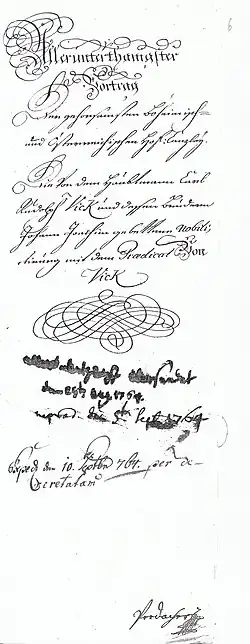 6
Allerunterthänigster
Vortrag
Der gehorsamsten böheimisch-
und Österreichischen Hof-Canzley.
Die von dem Hauptmann Carl
Rudolph Vick und dessen Brudern
Johann Joachim gebettene Nobili-
tirung mit dem Praedicat Von
Vick
den Aug 1764.
den Sept 1764
Exped den 10. 7bris 764. per de-
cretatum